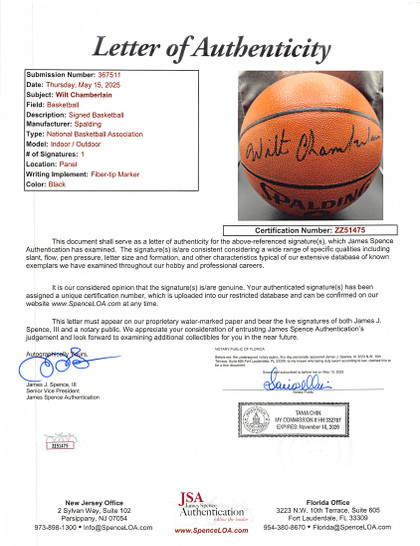 Letter of Authenticity
Submission Number: 367511
Date: Thursday, May 15, 2025
Subject: Wilt Chamberlain
Field: Basketball
Description: Signed Basketball
Manufacturer: Spalding
Type: National Basketball Association
Model: Indoor / Outdoor
# of Signatures: 1
Location: Panel
Writing Implement: Fiber-tip Marker
Color: Black
Wilt Chamberlain
SPALDING
Certification Number: ZZ51475
This document shall serve as a letter of authenticity for the above-referenced signature(s), which James Spence
Authentication has examined. The signature(s) is/are consistent considering a wide range of specific qualities including
slant, flow, pen pressure, letter size and formation, and other characteristics typical of our extensive database of known
exemplars we have examined throughout our hobby and professional careers.
It is our considered opinion that the signature(s) is/are genuine. Your authenticated signature(s) has been
assigned a unique certification number, which is uploaded into our restricted database and can be confirmed on our
website www.SpenceLOA.com at any time.
This letter must appear on our proprietary water-marked paper and bear the live signatures of both James J.
Spence, III and a notary public. We appreciate your consideration of entrusting James Spence Authentication's
judgement and look forward to examining additional collectibles for you in the near future.
Autographically Yours,
James J. Spence, III
Senior Vice President
James Spence Authentication
NOTARY PUBLIC OF FLORIDA
Notary Public
TANIA CHIN
EXPIRES: November 16, 2026
ZZ51475
New Jersey Office
2 Sylvan Way, Suite 102
Parsippany, NJ 07054
973-898-1300 • Info@SpenceLOA.com
JSA
James Spence
Authentication
follow the leader
www.SpenceLOA.com
Florida Office
3223 N.W. 10th Terrace, Suite 605
Fort Lauderdale, FL 33309
954-380-8670 • Florida@SpenceLOA.com